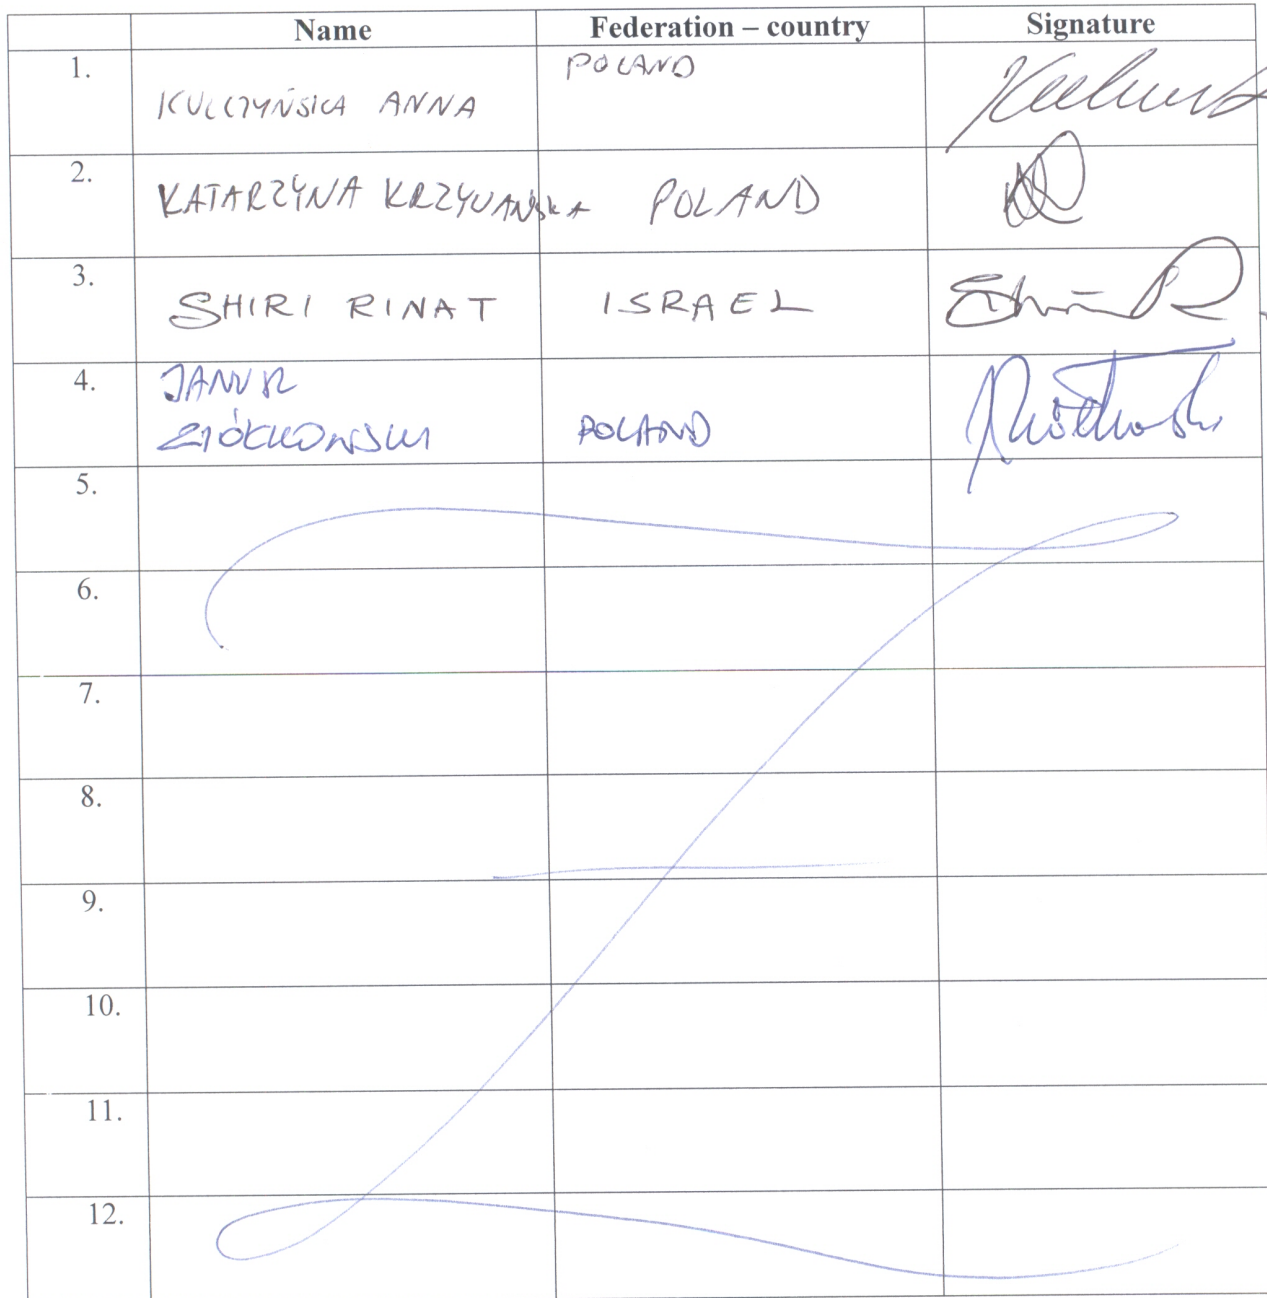 Name Federation – country Signature
1. POLAND
KULCZYŃSKA ANNA
2. KATARZYNA KRZYWAŃSKA POLAND
3. SHIRI RINAT ISRAEL
4. JANUSZ
ZIÓŁKOWSKI POLAND
5.
6.
7.
8.
9.
10.
11.
12.